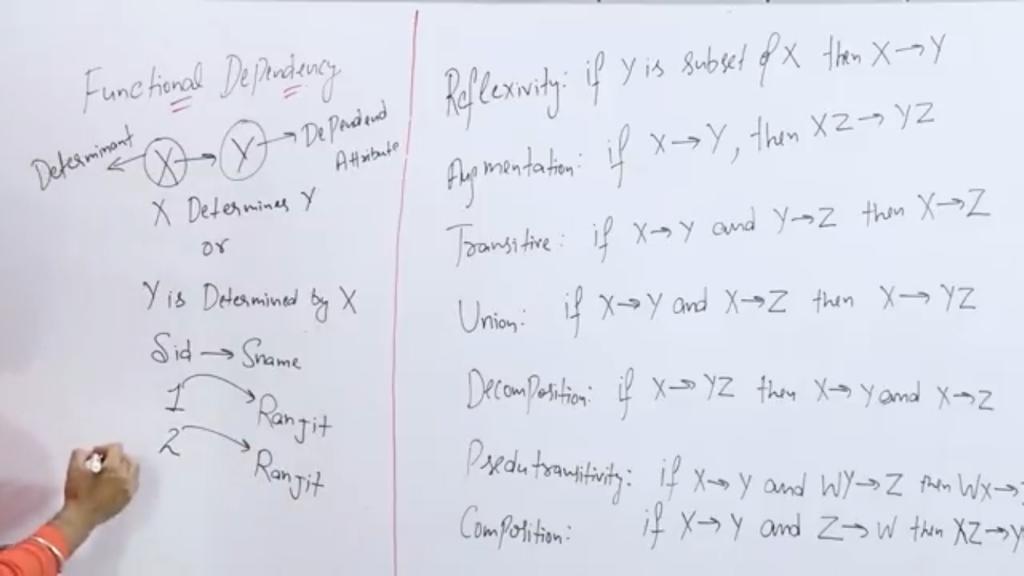 Functional Dependency
Determinant ← X → Y → Dependend
Attribute
X Determines Y
or
Y is Determined by X
Sid → Sname
1 Ranjit
2 Ranjit
Reflexivity: if Y is subset of X then X → Y
Augmentation: if X → Y, then XZ → YZ
Transitive: if X → Y and Y → Z then X → Z
Union: if X → Y and X → Z then X → YZ
Decomposition: if X → YZ then X → Y and X → Z
Psedutransitivity: if X → Y and WY → Z then WX →
Composition: if X → Y and Z → W then XZ → Y